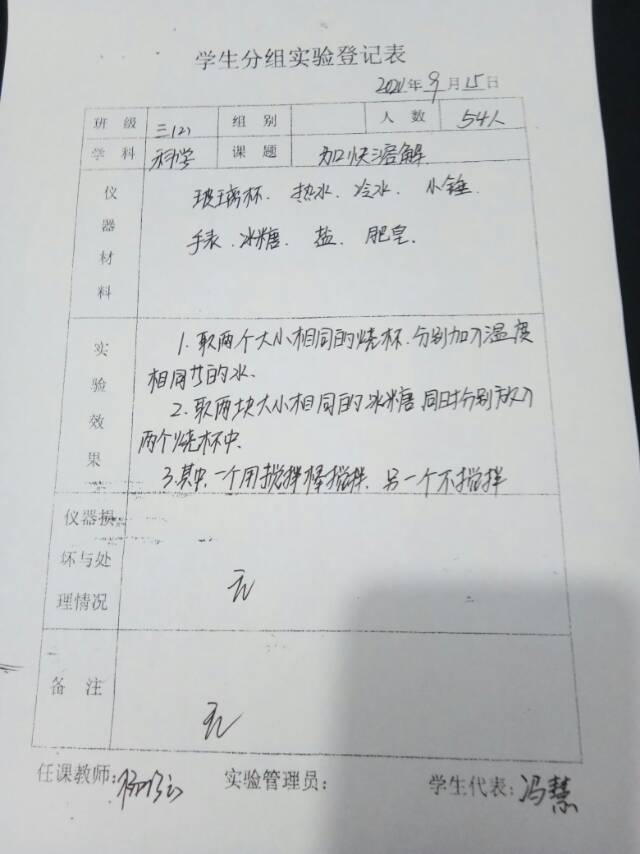 学生分组实验登记表
2021年9月15日
班级 三(2) 组别 人数 54人
学科 科学 课题 加快溶解
仪器材料
玻璃杯. 热水. 冷水. 小锤.
手表. 冰糖. 盐. 肥皂.
实验效果
1. 取两个大小相同的烧杯.分别加入温度
相同的水.
2. 取两块大小相同的冰糖.同时分别放入
两个烧杯中.
3.其中.一个用搅拌棒搅拌.另一个不搅拌
仪器损
坏与处
理情况
无
备注
无
任课教师: 实验管理员: 学生代表:冯慧